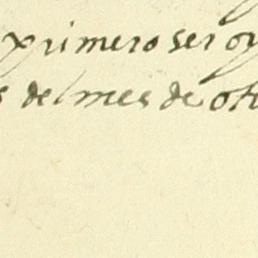 primero ser oy
s del mes de ot